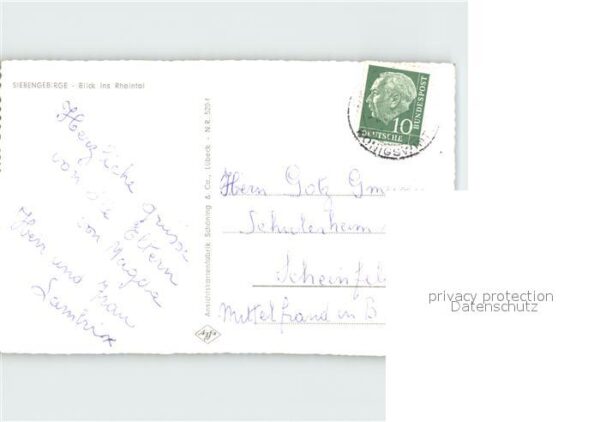 SIEBENGEBIRGE - Blick ins Rheintal
Herzliche grüsse
von die Eltern
von Magda
Herr und Frau
Ansichtskartenfabrik Schöning & Co., Lübeck - N.R.
10
DEUTSCHE
BUNDESPOST
Herrn Götz
Schülerheim
Scheinfel
Mittelfrand in B
privacy protection
Datenschutz